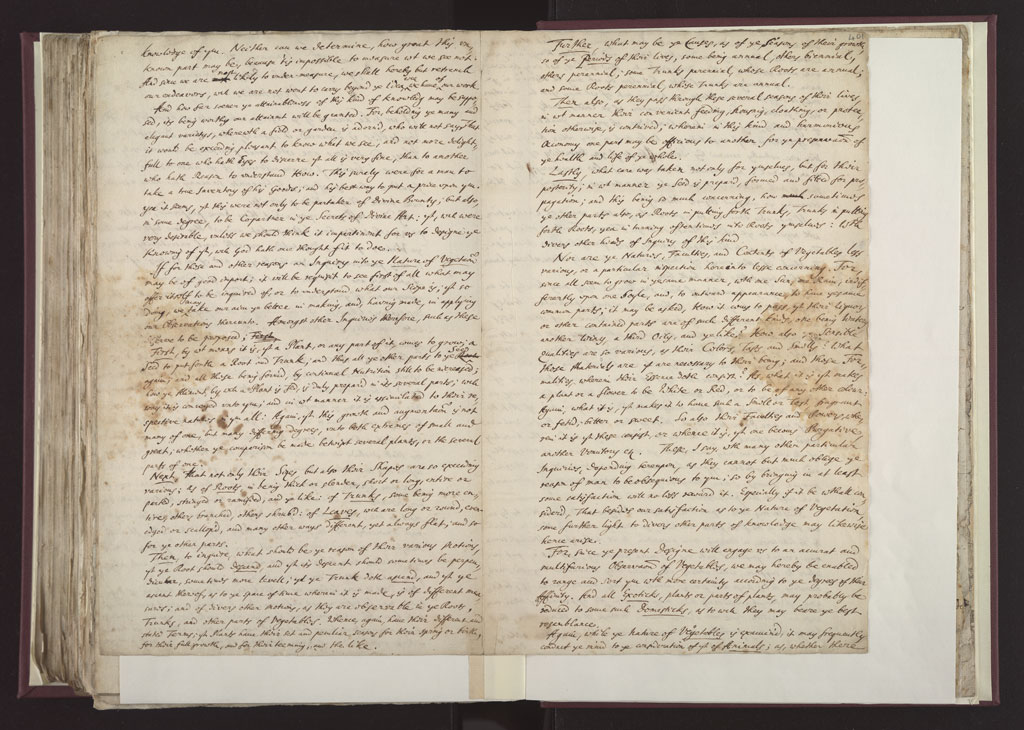 knowledge of ym. Neither can we determine, how great this un,
known part may bee, because tis impossible to measure wt we see not.
And since we are most likely to under-measure, we shall hereby but retrench
our endeavors, wch we are not wont to carry beyond ye Idea, we have of our work.
And how far soever ye attainableness of this kind of knowledg may be suppo,
sed, its being worthy our attainmt will be granted. For, beholding ye many and
elegant varietys, wherewth a field or garden is adorn'd, who will not say, That
it would be exceeding pleasant to know what we see; and not more delight,
full to one who hath Eyes to discerne yt all is very fine, than to another
who hath Reason to understand How. This surely were for a man to
take a true Inventory of his Goods; and his best way to put a price upon ym.
yea it seems, yt this were not only to be partaker of divine Bounty; but also,
in some degree, to be Copartner in ye Secrets of Divine Art: yt, wch were
very desirable, unless we should think it impertinent for us to designe ye
Knowing of yt, wch God hath once thought fit to doe.
If for these and other reasons an Inquiry into ye Nature of Vegetation
may be of good import; it will be requisit to see first of all what may
offer it self to be inquired of, or to understand what our Scope is; yt so
doing, we may take our aim ye better in making, and, having made, in applying
our Observations thereunto. Amongst other Inquiries therefore, such as these
deserve to be proposed;
First, by wt means it is, yt a Plant, or any part of it comes to grow; a
Seed to put forth a Root and Trunk; and this all ye other parts to ye Seed
again; and all these being formed, by continual Nutrition still to be increased;
how ye Aliment, by wch a Plant is fed, is duly prepared in its several parts; wch
way it is conveyed unto ym; and in wt manner it is assimilated to their re,
spective natures in ym all: Again, yt this growth and augmentation is not
many of one, but many different degrees, unto both extremes of small and
great; whether ye comparison be made betwixt several plants, or the several
parts of one.
Next, That not only their Sizes but also their Shapes are so exceeding
various; as of Roots in being thick or slender, short or long, entire or
parted, stringed or ramified, and ye like: of Trunks, some being more en,
tire, others branched, others shrub'd: of Leaves, wch are long or round, even
edged or escallop'd, and many other ways different, yet always flat; and so
for ye other parts.
Then, to inquire, what should be ye reason of their various Motions,
yt ye Root should descend, and yt its descent should sometimes be perpen,
dicular, sometimes more levell; yt ye Trunk doth ascend, and yt ye
ascent thereof, as to ye space of time wherein it is made, is of different mea,
sures; and of divers other motions, as they are observable in ye Roots,
Trunks, and other parts of Vegetables. Whence again have their different and
stated Terms; yt Plants have their set and peculiar seasons for their spring or birth,
for their full growth, and for their teeming, and the like.
Further, what may be ye Causes, as of ye Seasons of their growth,
so of ye Periods of their lives, some being annual, others biennial,
others perennial; some Trunks perennial, whose Roots are annual;
and some Roots perennial, whose Trunks are annual.
Then also, as they pass through these several seasons of their lives,
in wt manner their convenient feeding, housing, cloathing, or protec,
tion otherwise, is contrived; wherein in this kind and harmonious
Oeconomy one part may be officious to another, for ye preservation of
ye health and life of ye whole.
Lastly, what care was taken not only for ymselves, but for their
posterity; in wt manner ye Seed is prepared, formed and fitted for pro,
pagation; and this being so much concerning, how sometimes
ye other parts also, as Roots in putting forth Trunks, Trunks in putting
forth Roots, yea in turning oftentimes into Roots ymselves: With
divers other kinds of Inquiry of this kind
Nor are ye Natures, Faculties, and Contents of Vegetables less
various, or a particular inspection hereunto lesse concerning. For,
since all seem to grow in ye same manner, with one Sun, one Rain, indif,
ferently upon one Soyle, and, to outward appearance, to have ye same
common parts; it may be asked, How it comes to pass, yt their Liquors,
or other contained parts are of such different kinds, one being Watery,
another Winy, a third Oily, and ye like? How also Sensible
qualities are so various, as their Colors, Tasts and Smells: What
those Materials are yt are necessary to their being; and those For,
malities, wherein their Essence doth consist. As, what it is yt makes
a plant or a flower to be White or Red, or to be of any other colour;
Again, what it is, yt makes it to have such a Smell or Tast, fragrant,
or fetid, bitter or sweet. So also their Faculties and Powers, whe,
rein it is yt these consist, or whence it is, yt one becomes Purgative,
another Vomitory etc. These, I say, wth many other particular
Inquiries, depending hereupon, as they cannot but much oblige ye
reason of man to be obsequious to ym; so by bringing in at least
some satisfaction will no less reward it. Especially if it be withall con,
sider'd. That besides our satisfaction as to ye Nature of Vegetation,
some further light to divers other parts of knowledge may likewise
hence arise.
For, since ye present Designe will engage us to an accurat and
multifarious Observation of Vegetables, we may hereby be enabled
to range and sort ym wth more certainty according to ye degrees of their
affinity. And all Exoticks, plants or parts of plants, may probably be
reduced to some such Domesticks, as to wch they may beare ye best
resemblance.
Again, while ye Nature of Vegetables is examined, it may frequently
conduct ye mind to ye consideration of yt of Animals; as, whether there